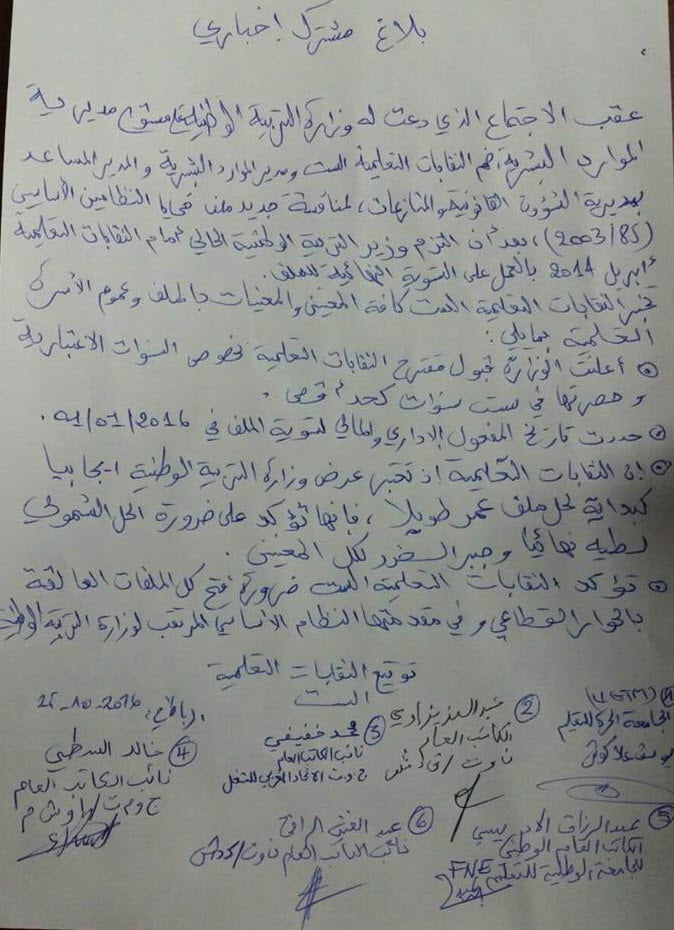 بلاغ مشترك إخباري
عقب الاجتماع الذي دعت له وزارة التربية الوطنية على مستوى مديرية
الموارد البشرية، ضم النقابات التعليمية الست ومدير الموارد البشرية والمدير المساعد
بمديرية الشؤون القانونية والمنازعات، لمناقشة جديد ملف ضحايا النظامين الأساسيين
(2003/85)، بعد أن التزم وزير التربية الوطنية الحالي أمام النقابات التعليمية
أبريل 2014 بالعمل على التسوية النهائية للملف.
تخبر النقابات التعليمية الست كافة المعنيين والمعنيات بالملف وعموم الأسرة
التعليمية بمايلي:
• أعلنت الوزارة قبول مقترح النقابات التعليمية بخصوص السنوات الاعتبارية
وحصرتها في ست سنوات كحد أقصى.
• حددت تاريخ المفعول الإداري والمالي لتسوية الملف في 01/01/2016.
• إن النقابات التعليمية إذ تعتبر عرض وزارة التربية الوطنية إيجابيا
كبداية لحل ملف عمر طويلا، فإنها تؤكد على ضرورة الحل الشمولي
لطيه نهائيا وجبر الضرر لكل المعنيين.
• تؤكد النقابات التعليمية الست ضرورة فتح كل الملفات العالقة
بالحوار القطاعي وفي مقدمتها النظام الأساسي المرتقب لوزارة التربية الوطنية
توقيع النقابات التعليمية
الست
الرباط في: 25-10-2016
① (UGTM)
الجامعة الحرة للتعليم
يوسف علاكوش
② عبد العزيز إيوي
الكاتب العام
ن و ت / ف د ش
③ محمد خفيفي
نائب الكاتب العام
ج و ت الاتحاد المغربي للشغل
④ خالد السطي
نائب الكاتب العام
ج و م ت / ا و ش م
⑤ عبد الرزاق الإدريسي
الكاتب العام الوطني
للجامعة الوطنية للتعليم FNE
⑥ عبد الغني الراقي
نائب الكاتب العام ن و ت / كدش